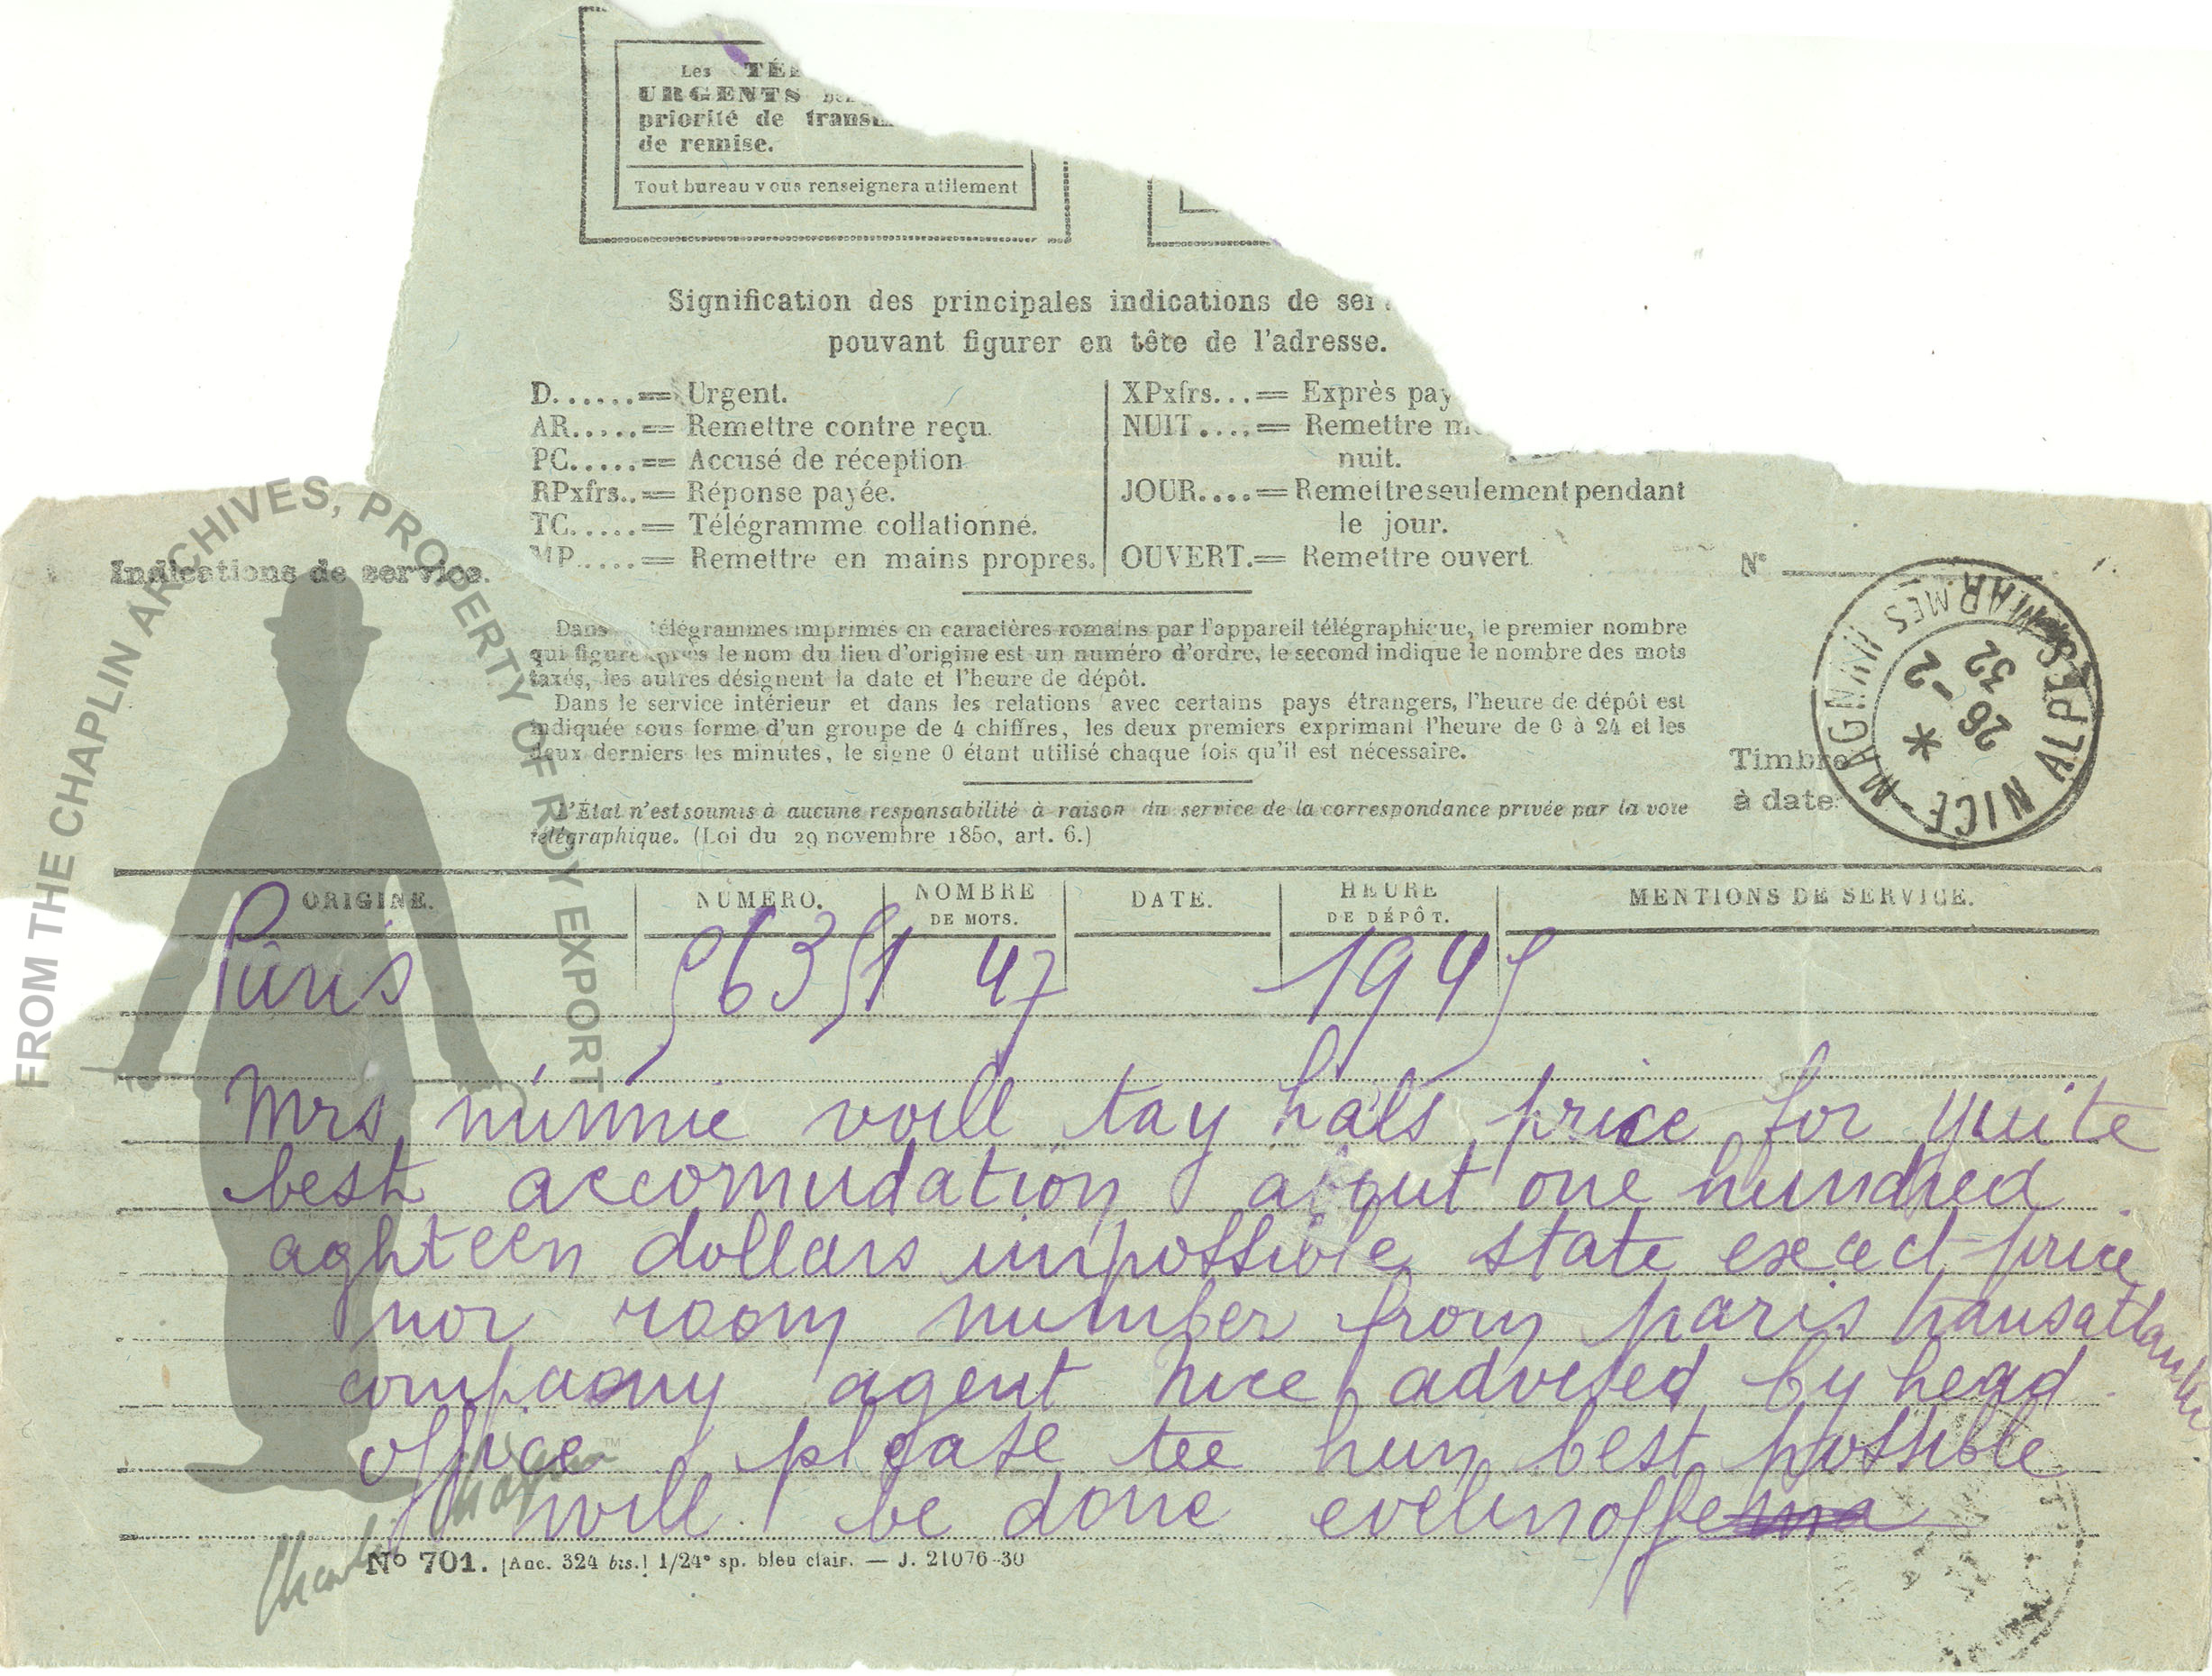 Les TÉ
URGENTS
priorité de trans
de remise.
Tout bureau vous renseignera utilement
Signification des principales indications de ser
pouvant figurer en tête de l'adresse.
D......== Urgent.
AR.....== Remettre contre reçu.
PC.....== Accusé de réception
RPxfrs..== Réponse payée.
TC.....== Télégramme collationné.
MP.....== Remettre en mains propres.
XPxfrs...== Exprès pay
NUIT....== Remettre m
nuit.
JOUR....== Remettre seulement pendant
le jour.
OUVERT.== Remettre ouvert
Indications de service.
N°
Dans télégrammes imprimés en caractères romains par l'appareil télégraphique, le premier nombre
qui figure après le nom du lieu d'origine est un numéro d'ordre, le second indique le nombre des mots
taxés, les autres désignent la date et l'heure de dépôt.
Dans le service intérieur et dans les relations avec certains pays étrangers, l'heure de dépôt est
indiquée sous forme d'un groupe de 4 chiffres, les deux premiers exprimant l'heure de 0 à 24 et les
deux derniers les minutes, le signe 0 étant utilisé chaque fois qu'il est nécessaire.
L'État n'est soumis à aucune responsabilité à raison du service de la correspondance privée par la voie
télégraphique. (Loi du 29 novembre 1850, art. 6.)
Timbre
à date
NICE-MAGNAN ALPES MARMES
26 -2
32
ORIGINE. NUMÉRO. NOMBRE DE MOTS. DATE. HEURE DE DÉPÔT. MENTIONS DE SERVICE.
Paris 47 1945
Mrs minnie voill tay hals price for quite
best accomudation about one hundred
aghteen dollars impossible state exect price
nor room number from paris transatlantic
company agent nice advised by head
office please tee hun best possible
will be done evelinoffe
N° 701. [Anc. 324 bis.] 1/24e sp. bleu clair. — J. 21076-30
FROM THE CHAPLIN ARCHIVES, PROPERTY OF ROY EXPORT
Charlie Chaplin™